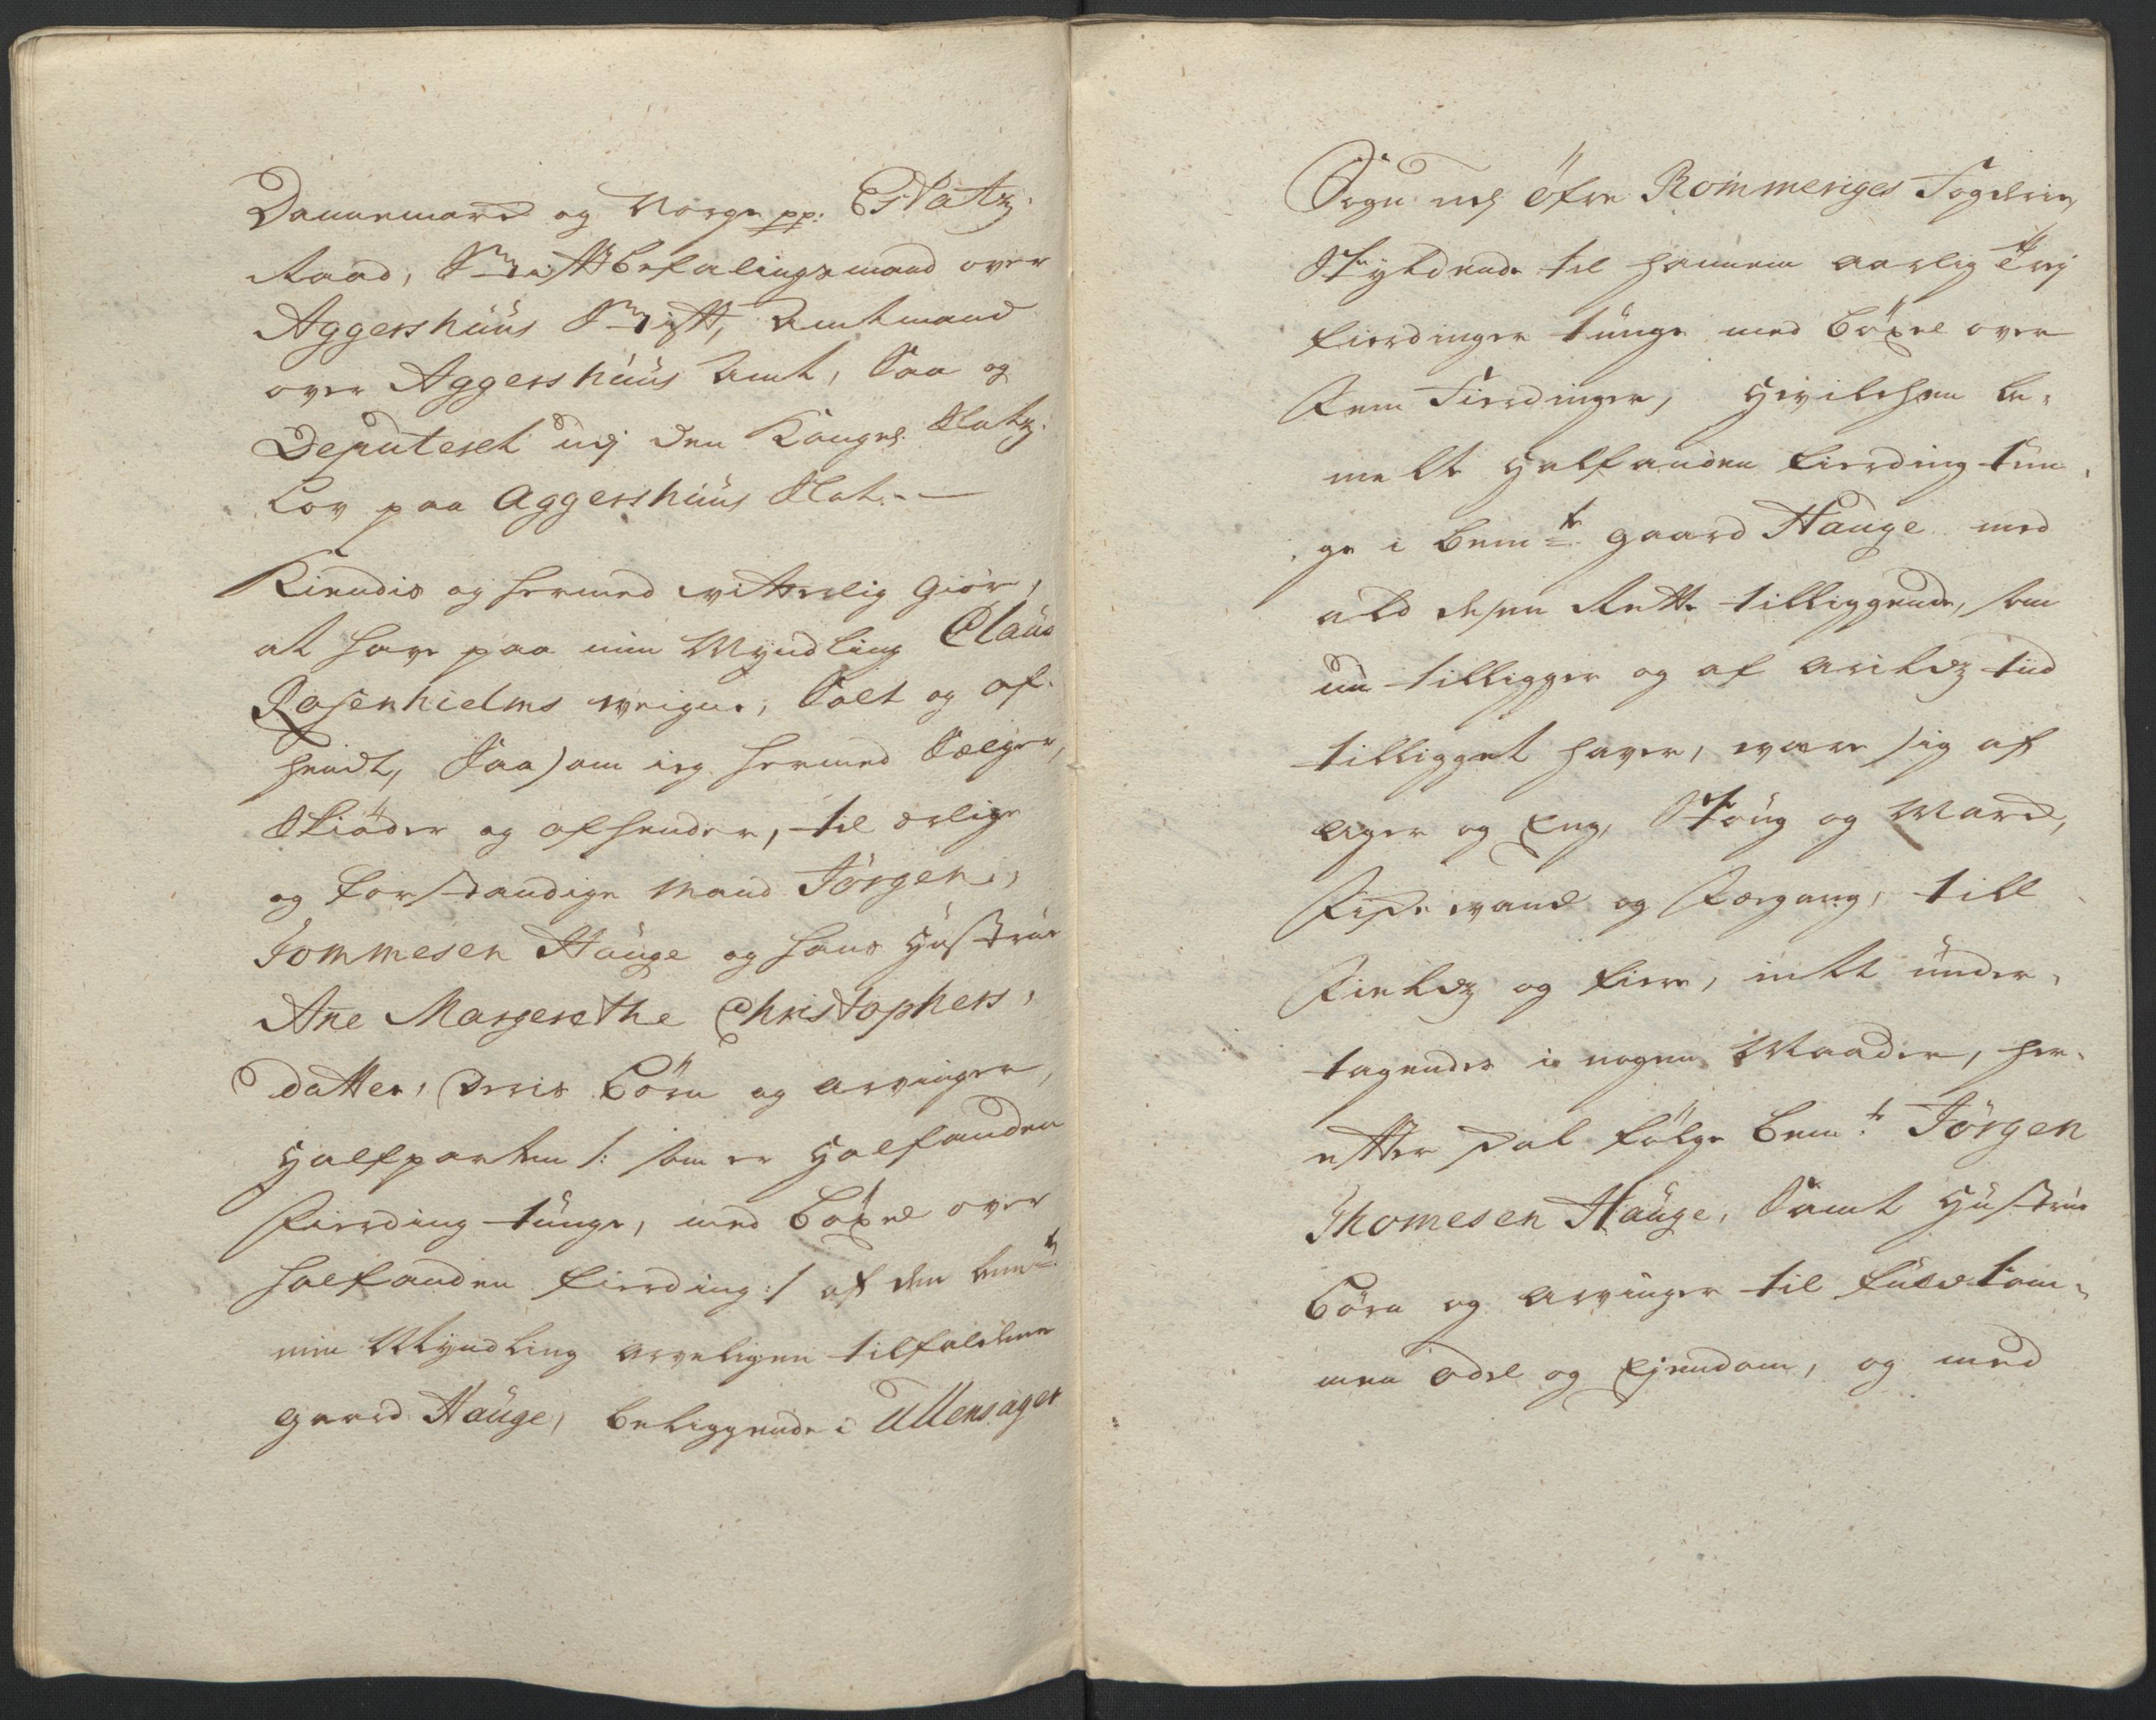 Dannemarc og Norge pp: Etatz-
Raad, Stiftbefalingsmand over
Aggershuus Stift, Amtmand
over Aggershuus Amt, Saa og
Deputeret udj den Kongel. Slotz-
Lov paa Aggershuus Slot.
Kiendis og hermed witterlig giör,
at have paa min Myndling Claus
Rosenhielms weigne, Solt og af-
hendt, Saasom ieg hermed Sælger,
Skiöder og afhender, til ærlige
og forstandige Mand Jörgen
Tommesen Hauge og hans Hustrue
Ane Margerethe Christophers-
datter, Deris Börn og arvinger,
Halfparten /: som er Halfanden
Fierding tunge, med böxel over
halfanden fierding :/ af den bemte
min Myndling arveligen tilfaldene
gaard Hauge, beliggende i Ullensager
Sogn udj öfre Rommeriges Fogderie,
Skyldende til hannem aarlig Trej
fierdinger tunge med böxel over
Fem Fierdinger, Hvilchen be-
melte Halfanden fierding tun-
ge i bemte gaard Hauge med
ald dessen Rette tilliggende, som
nu tilligger og af arildz tiid
tilligget haver, være sig af
ager og Eng, Skoug og Marc,
Fiske wand og Færgang, till
Fieldz og fiere, intet under-
tagendes i nogen Maader, her-
efter skal følge bemte Jörgen
Thomesen Hauge, Samt Hustrue
Börn og arvinger til fuldkom-
men odel og Ejendom, og med